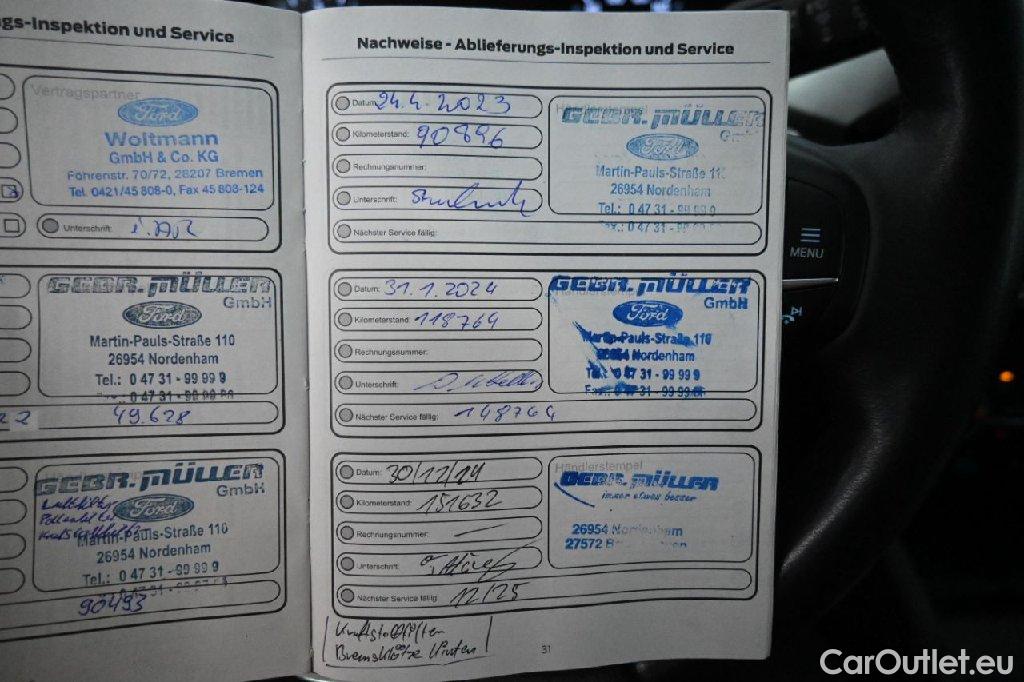 gs-Inspektion und Service
Vertragspartner
Ford
Woltmann
GmbH & Co. KG
Föhrenstr. 70/72, 28207 Bremen
Tel. 0421/45 808-0, Fax 45 808-124
Unterschrift:
GEBR. MÜLLER
GmbH
Ford
Martin-Pauls-Straße 110
26954 Nordenham
Tel.: 0 47 31 - 99 99 9
49.628
GEBR. MÜLLER
GmbH
Ford
Martin-Pauls-Straße 110
26954 Nordenham
Tel.: 0 47 31 - 99 99 9
90493
Nachweise - Ablieferungs-Inspektion und Service
Datum: 24.4.2023
Kilometerstand: 90896
Rechnungsnummer:
Unterschrift:
Nächster Service fällig:
Händlerstempel
GEBR. MÜLLER
GmbH
Ford
Martin-Pauls-Straße 11
26954 Nordenham
Tel.: 0 47 31 - 99 99 9
Datum: 31.1.2024
Kilometerstand: 118764
Rechnungsnummer:
Unterschrift:
Nächster Service fällig: 148764
Händlerstempel
GEBR. MÜLLER
GmbH
Ford
Martin-Pauls-Straße 110
26954 Nordenham
Tel.: 0 47 31 - 99 99 9
Fax.: 0 47 31 - 99 99
Datum: 30/12/24
Kilometerstand: 151632
Rechnungsnummer:
Unterschrift:
Nächster Service fällig: 12/25
Händlerstempel
GEBR. MÜLLER
immer etwas besser
26954 Nordenham
27572
Kraftstofffilter
Bremsklötze hinten
31
MENU
CarOutlet.eu